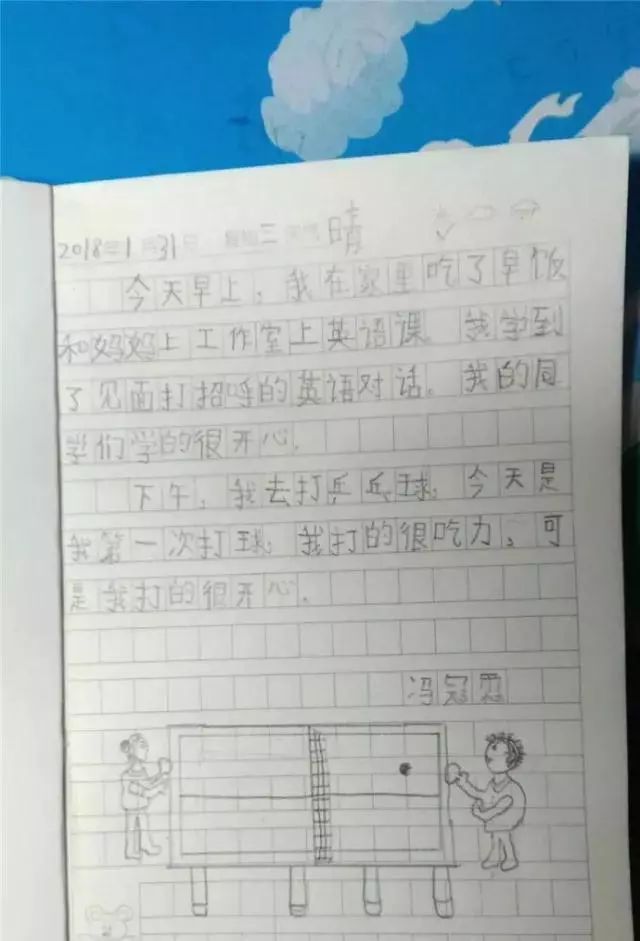 2018年1月31日 星期三 天气 晴
今天早上，我在家里吃了早饭
和妈妈上工作室上英语课。我学到
了见面打招呼的英语对话。我的同
学们学的很开心。
下午，我去打乒乓球，今天是
我第一次打球，我打的很吃力，可
是我打的很开心。
冯冠霖